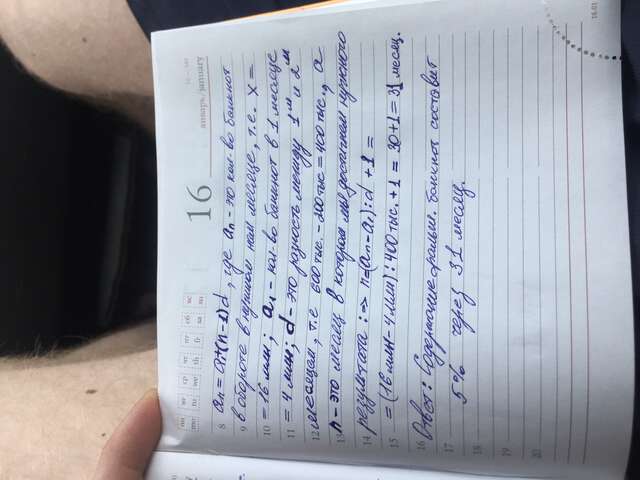 пн вт ср чт пт сб вс
mo tu we th fr sa su
16
январь/january
8 an = a1+(n-1)d, где an - это кол-во банкнот
9 в обороте в нужном нам месяце, т.е. x =
10 = 16 млн; a1 - кол-во банкнот в 1 месяце
11 = 4 млн; d - это разность между 1м и 2м
12 месяцем, т.е 600 тыс. - 200 тыс = 400 тыс., а
13 n - это месяц в котором мы достигнем нужного
14 результата :=> n=(an-a1):d +1 =
15 = (16 млн - 4 млн) : 400 тыс. + 1 = 30+1 = 31 месяц.
16 Ответ: Содержание фальш. банкнот составит
17 5% через 31 месяц.
18
19
20
16.01